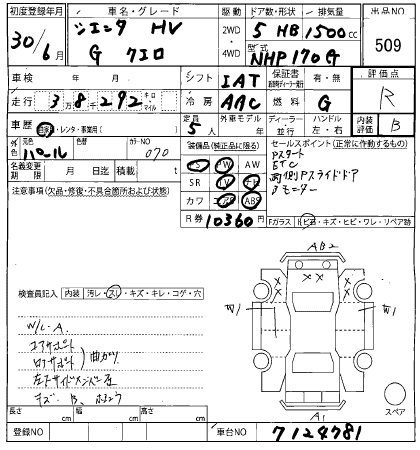 初度登録年月 車名・グレード 駆動 ドア数・形状 排気量 出品NO
30/6月 シエンタ HV 2WD・4WD 5 HB 1500cc 509
G クエロ 型式 NHP170G
車検 年 月 シフト IAT 保証書 有・無 評価点
走行 3万8千292 キロ・マイル 冷房 AAC 燃料 G R
車歴 自家用・レンタ・事業用( ) 定員 5人 外車モデル 年 ディーラー・並行 ハンドル 左・右 内装評価 B
外色 元色 パール 色替 カラーNO 070
装備品(純正品に限る) セールスポイント(正常に作動するもの)
名義変更期限 月 日迄 積載 t
PS PW AW Pスタート
SR TV ナビ ETC
カワ エアB ABS 両側Pスライドドア
R券 10360円 Bモニター
注意事項(欠品・修復・不具合箇所および状態)
Fガラス ヒビ・キズ・ヒビ・ワレ・リペア跡
AB2
X X X X
W1 W1
検査員記入 内装 汚レ・スレ・キズ・キレ・コゲ・穴
W/L・A.
コアサポート
ロアサポート 曲ガリ
左Fサイドメンバー
キズ B,
A1 スペア
長さ cm 幅 cm 高さ cm
登録NO 車台NO 7124781